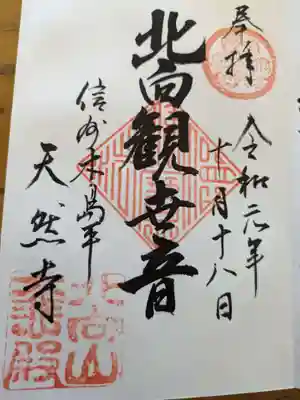 奉拝
令和元年
十一月十八日
北向観世音
信州木島平
天然寺